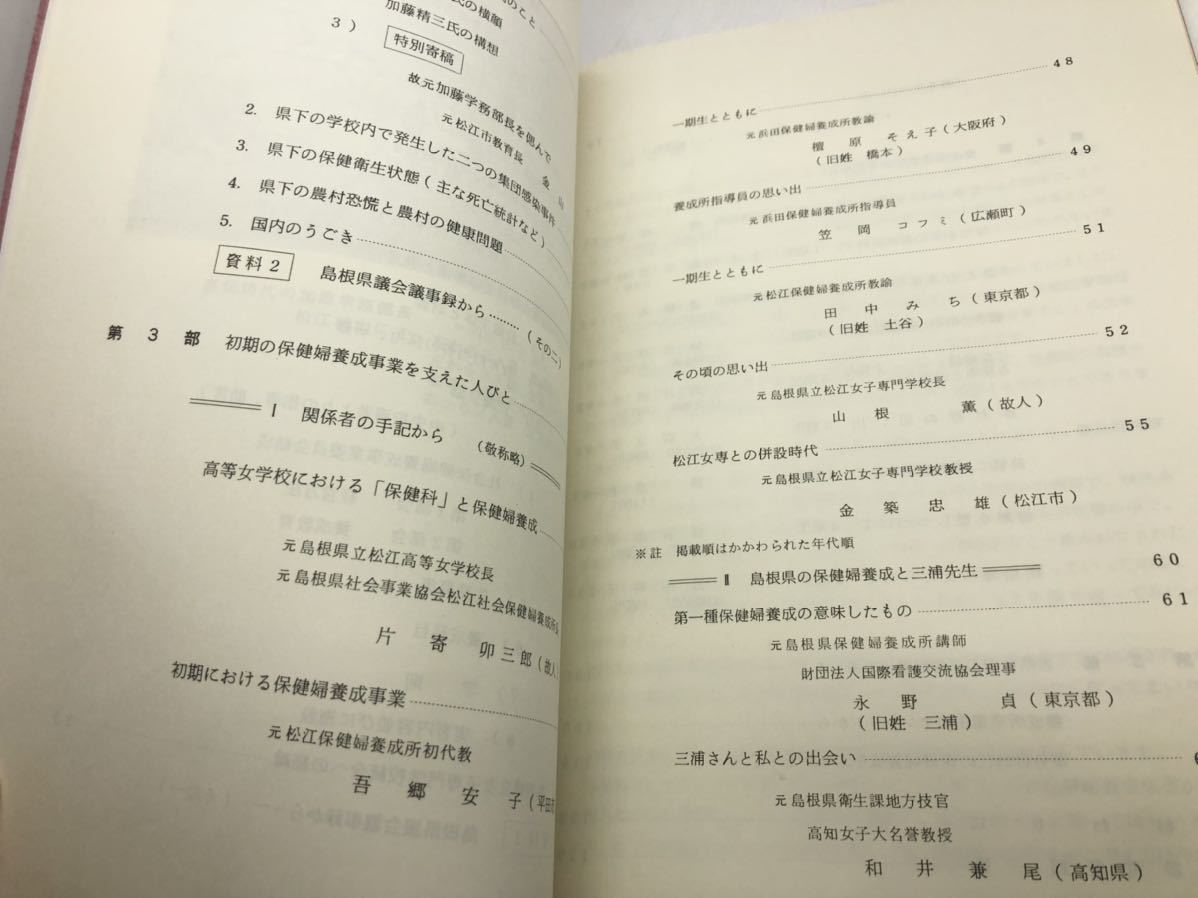 のこと
氏の横顔
加藤精三氏の構想
3） 特別寄稿
故元加藤学務部長を偲んで
元松江市教育長 金 山
2. 県下の学校内で発生した二つの集団感染事件
3. 県下の保健衛生状態（主な死亡統計など）
4. 県下の農村恐慌と農村の健康問題
5. 国内のうごき
資料2 島根県議会議事録から………（その二）
第 3 部 初期の保健婦養成事業を支えた人びと
Ⅰ 関係者の手記から （敬称略）
高等女学校における「保健科」と保健婦養成
元島根県立松江高等女学校長
元島根県社会事業協会松江社会保健婦養成所
片 寄 卯三郎（故人
初期における保健婦養成事業
元松江保健婦養成所初代教
吾 郷 安 子（平田市
一期生とともに 48
元浜田保健婦養成所教諭
檀 原 そえ子（大阪府）
（旧姓 橋本）
養成所指導員の思い出 49
元浜田保健婦養成所指導員
笠 岡 コフミ（広瀬町）
一期生とともに 51
元松江保健婦養成所教諭
田 中 みち（東京都）
（旧姓 土谷）
その頃の思い出 52
元島根県立松江女子専門学校長
山 根 薫（故人）
松江女専との併設時代 55
元島根県立松江女子専門学校教授
金 築 忠 雄（松江市）
※註 掲載順はかかわられた年代順
Ⅱ 島根県の保健婦養成と三浦先生 60
第一種保健婦養成の意味したもの 61
元島根県保健婦養成所講師
財団法人国際看護交流協会理事
永 野 貞（東京都）
（旧姓 三浦）
三浦さんと私との出会い 6
元島根県衛生課地方技官
高知女子大名誉教授
和 井 兼 尾（高知県）